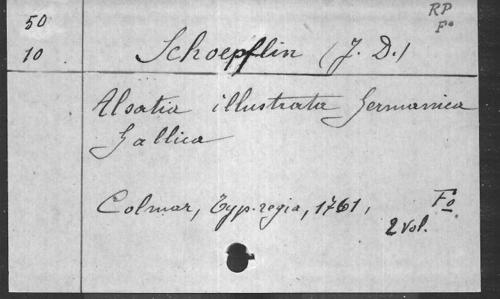 RP
50 Fo
10 Schoepflin (J. D.)
Alsatia illustrata Germanica
Gallica
Colmar, Typ. regia, 1761, Fo
2 vol.